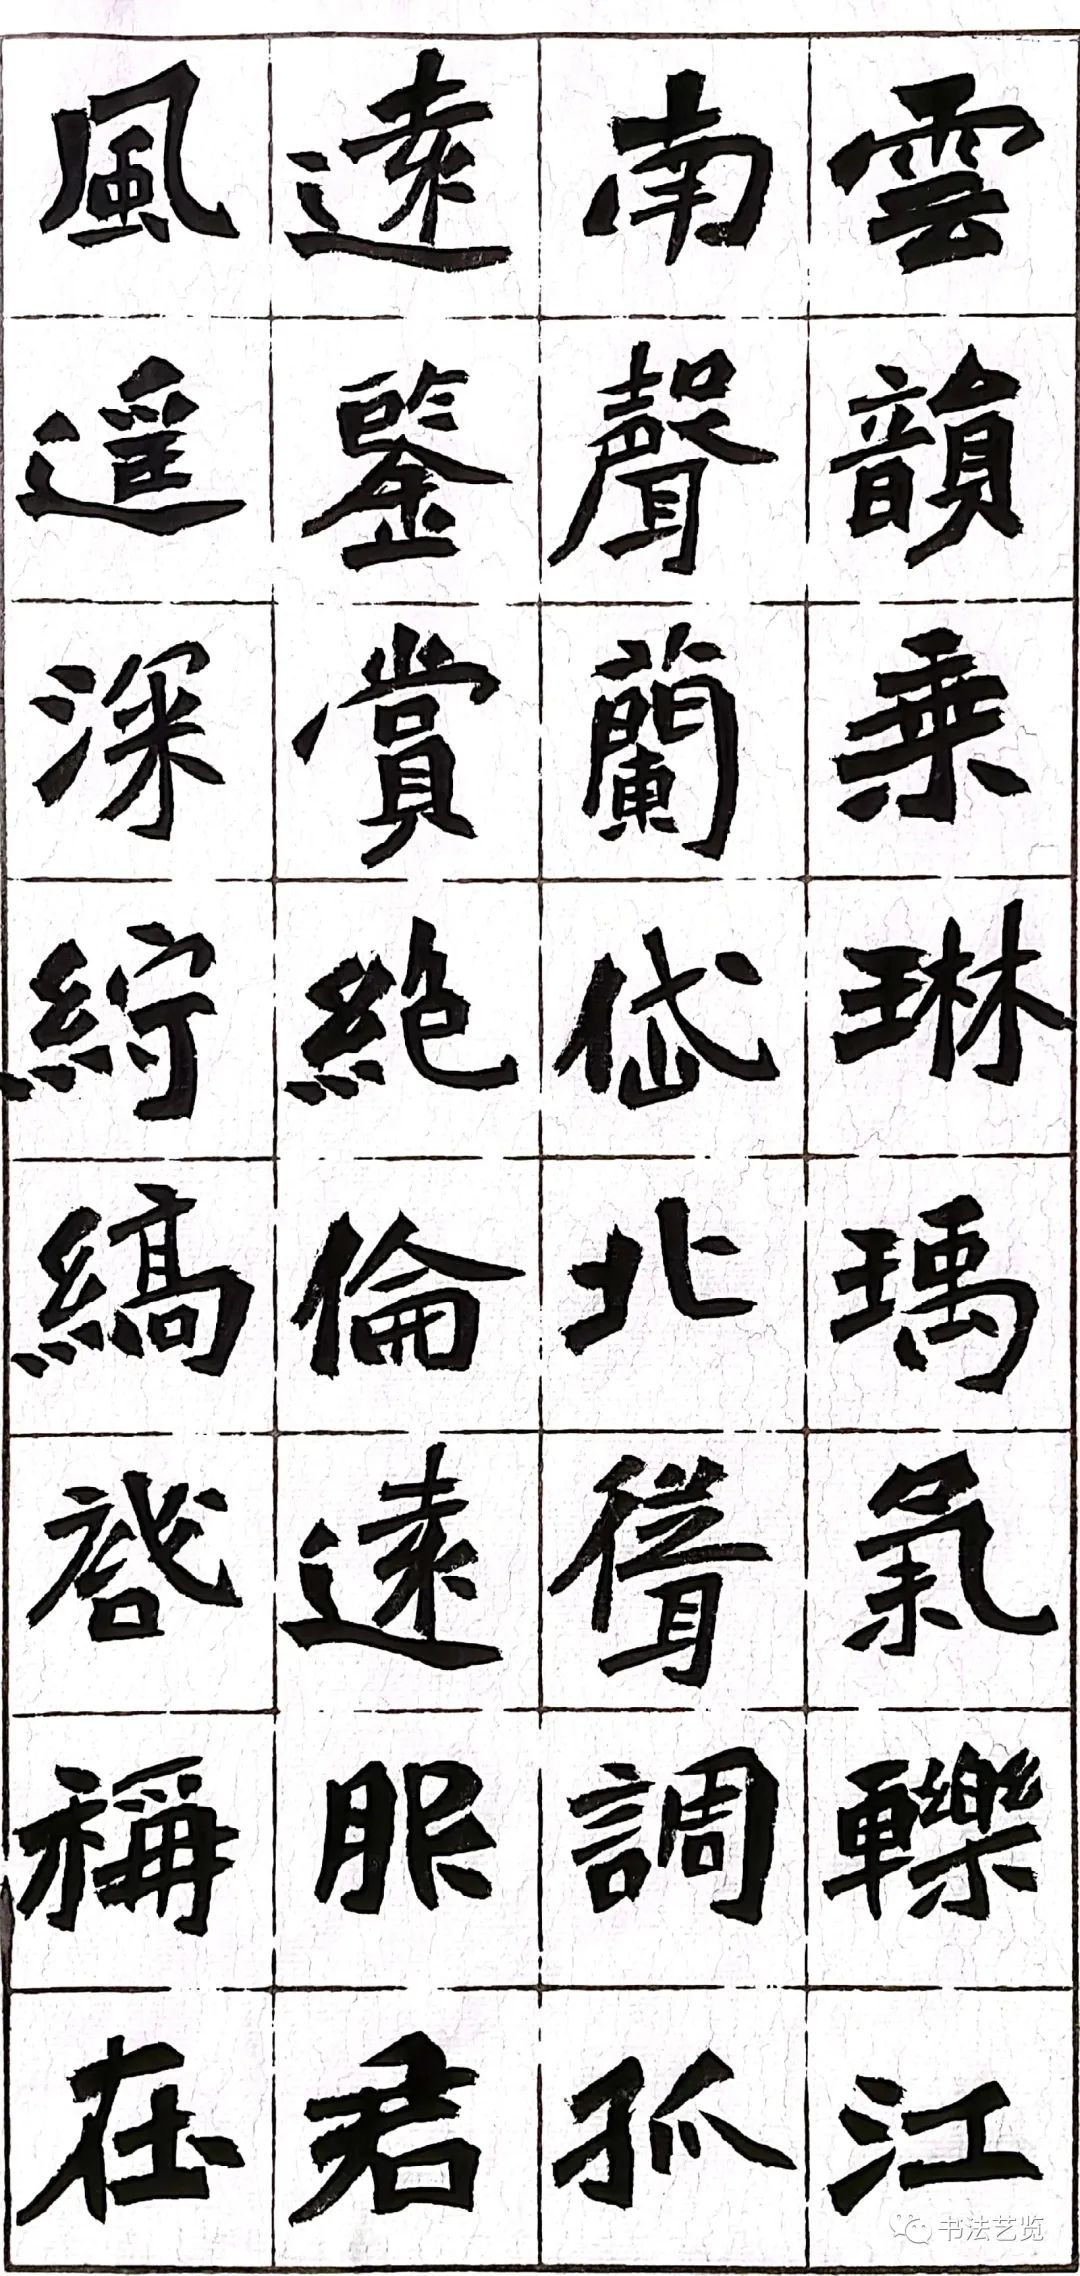 雲韻乘琳瑀氣轢江
南聲蘭岱北聳調孤
遠鑒賞絶倫遠服君
風遥深紵縞啓稱在
书法艺览